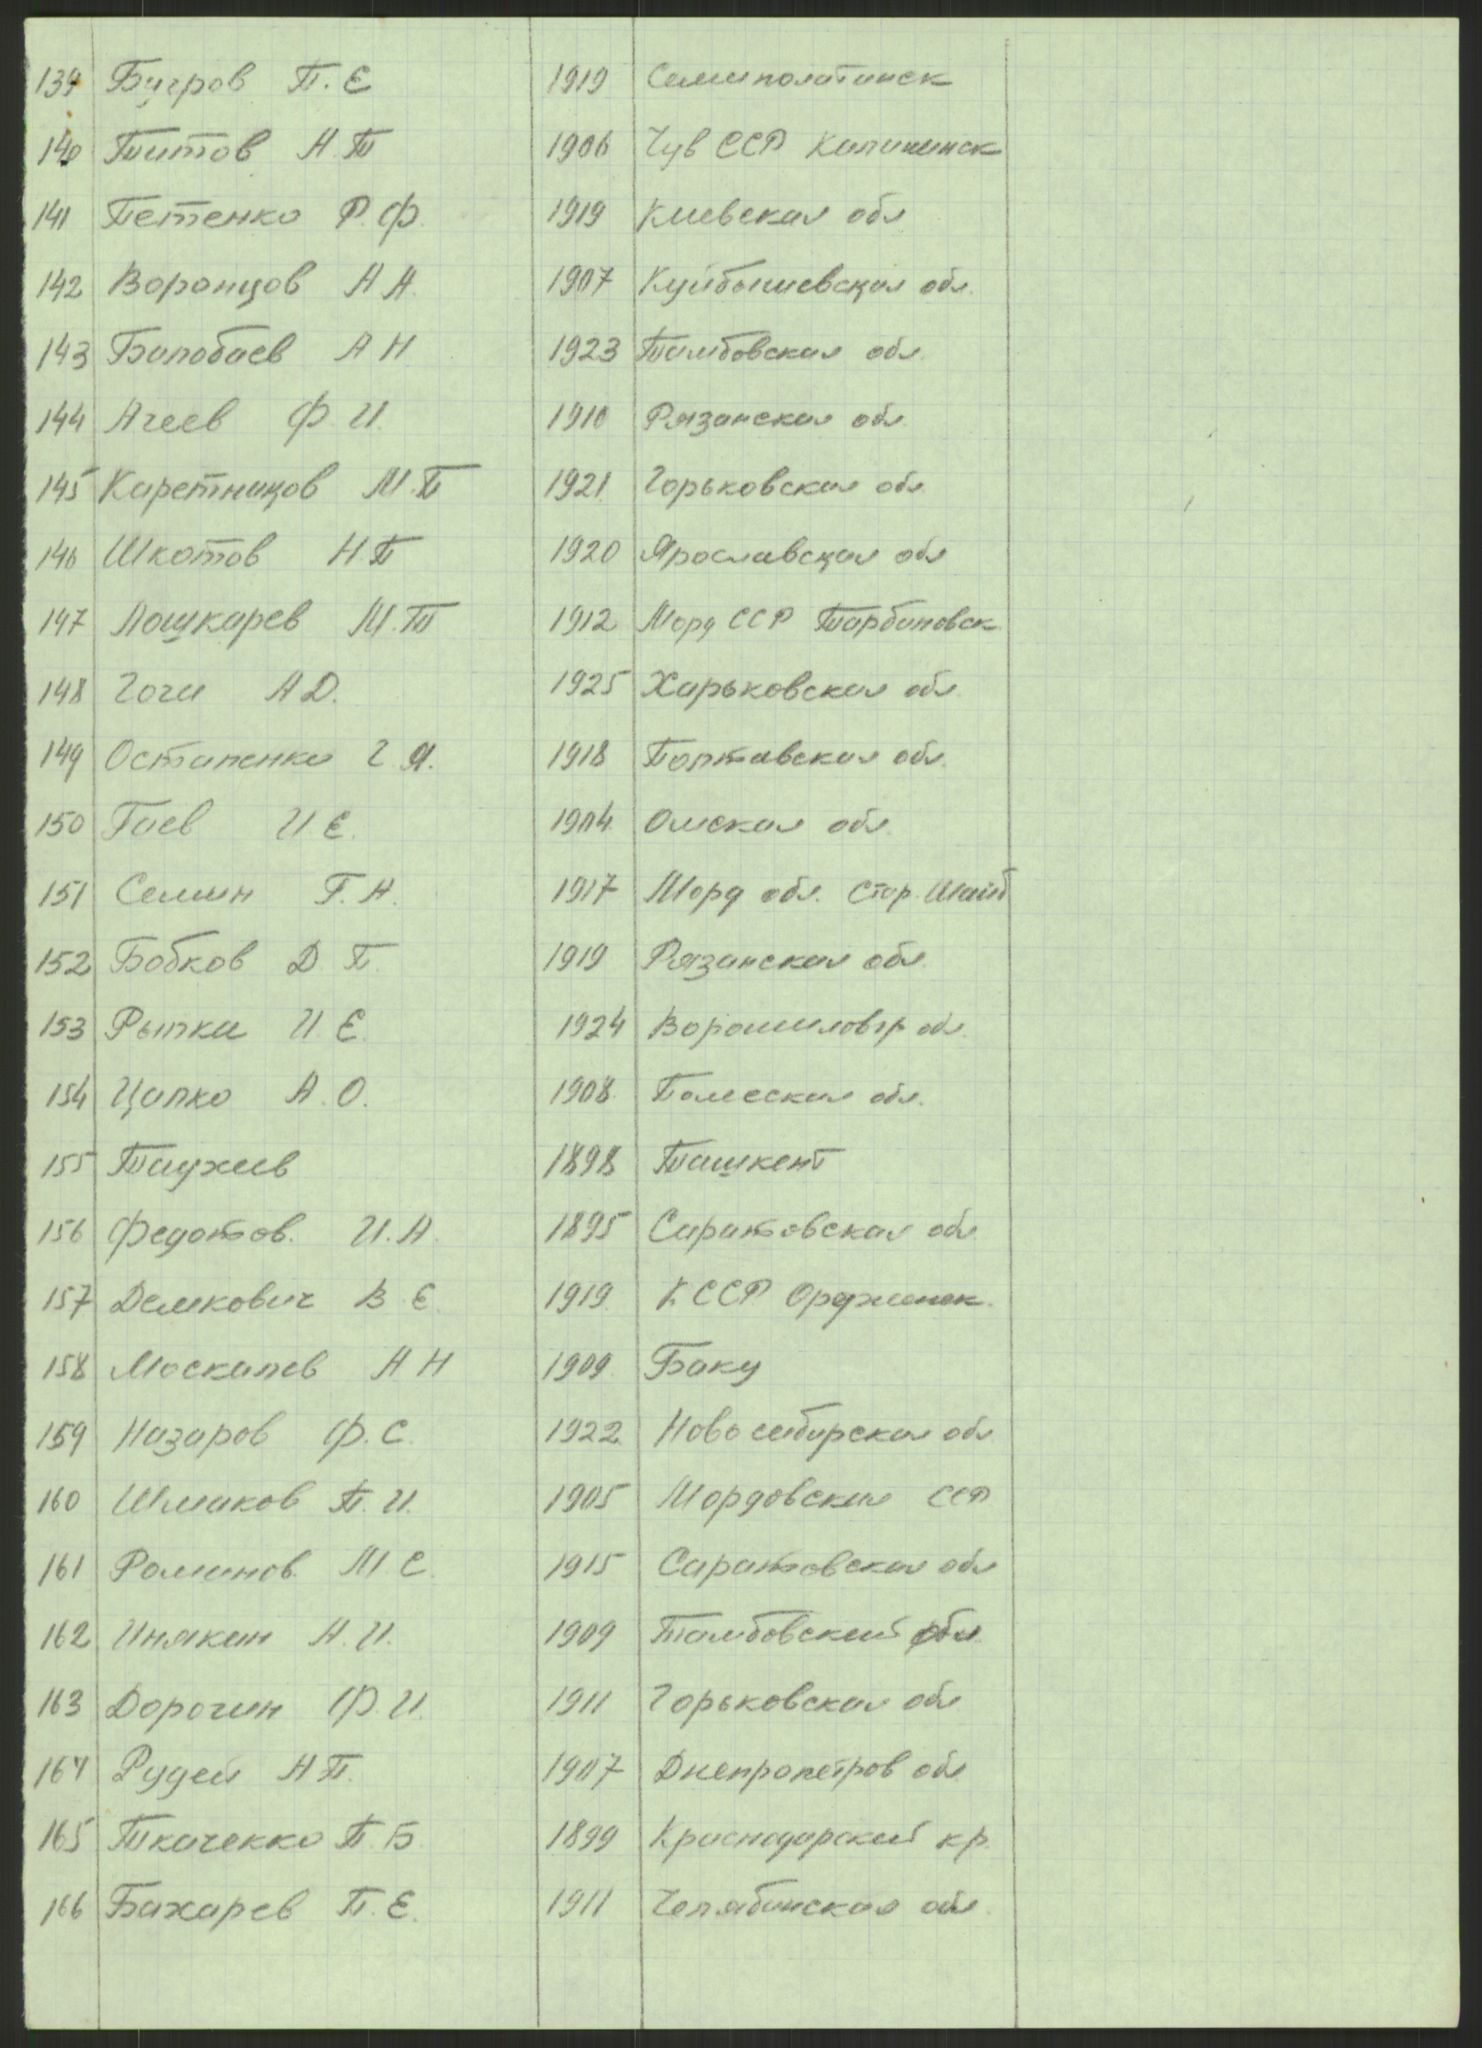 139 Бугров П. Е 1919 Семиполатинск
140 Титов А. Т 1906 Чув ССР Калининск
141 Петенко Р. Ф. 1919 Киевская обл
142 Воронцов А А. 1907 Куйбышевская обл.
143 Балобаев А Н 1923 Тамбовская обл.
144 Агеев Ф. И. 1910 Рязанская обл.
145 Каретников М. П 1921 Горьковская обл.
146 Шкотов Н. П 1920 Ярославская обл
147 Лошкарев М. Т 1912 Морд ССР Тарбановск.
148 Гоги А Д. 1925 Харьковская обл.
149 Остапенко Г. Я. 1918 Полтавская обл.
150 Гаев И. Е. 1904 Омская обл.
151 Семин Г. А. 1917 Морд обл. Стар. Шайг
152 Бобков Д П. 1919 Рязанская обл.
153 Рыпка И Е. 1924 Ворошиловгр обл.
154 Цапко А. О. 1908 Полесская обл.
155 Таужев 1898 Ташкент
156 Федотов. И. А. 1895 Саратовская обл
157 Демкович В Е. 1919 К ССР Орджонек.
158 Москалев А Н 1909 Баку
159 Назаров Ф. С. 1922 Новосибирская обл
160 Шмаков П. И. 1905 Мордовская ССР
161 Романов М С. 1915 Саратовская обл
162 Инякин А. И. 1909 Тамбовский обл
163 Дорогин Ф. И. 1911 Горьковская обл
164 Рудей А П. 1907 Днепропетров обл
165 Ткаченко П. Б. 1899 Краснодарский кр.
166 Бахарев П. Е. 1911 Челябинская обл.